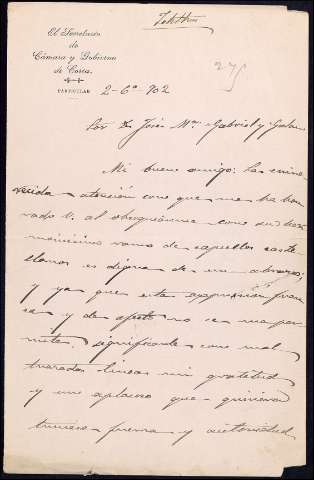 El Secretario
de
Cámara y Gobierno
de Coria.
PARTICULAR
2-6º-902
275
Sor Dn José Mª Gabriel y Galan
Mi buen amigo: La inme
recida atención con que me ha hon
rado V. al obsequiarme con su her
mosisimo ramo de aquellas caste
llanas es digna de un abrazo;
y ya que esta expresion fran
ca y de afecto no se me per
mite, significole con mal
trazadas lineas mi gratitud
y un aplauso que quisiera
tuviese fuerza y autoridad